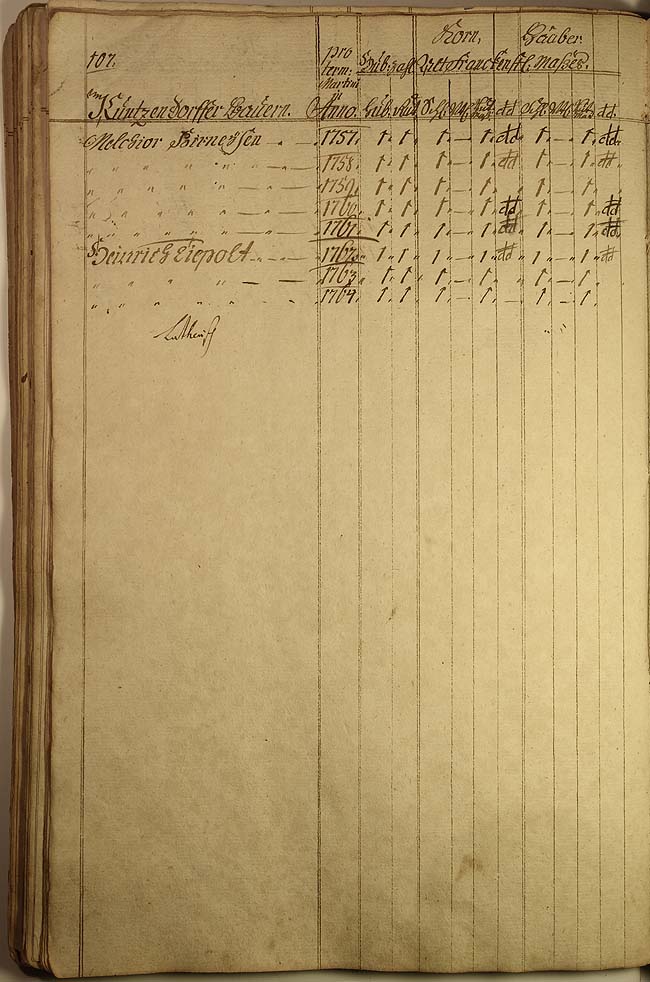 107.
pro
term:
Martini
Korn, Haaber
Hub zahl Alt Franckenst: Maßes.
Kuntzendorffer Bauern. Anno.
Melchior Birnessen 1757. 1. 1. 1. — 1. dd 1. — 1. dd
" " " " " — 1758. 1. 1. 1. — 1. dd 1. — 1. dd
" " " " " — 1759. 1. 1. 1. — 1. 1. — 1.
" " " " " — 1760. 1. 1. 1. — 1. dd 1. — 1. dd
" " " " " — 1761. 1. 1. 1. — 1. dd 1. — 1. dd
Heinrich Liepolt — 1762. 1. 1. 1. — 1. dd 1. — 1. dd
" " " " — 1763. 1. 1. 1. — 1. 1. — 1.
" " " " — 1764. 1. 1. 1. — 1. 1. — 1.